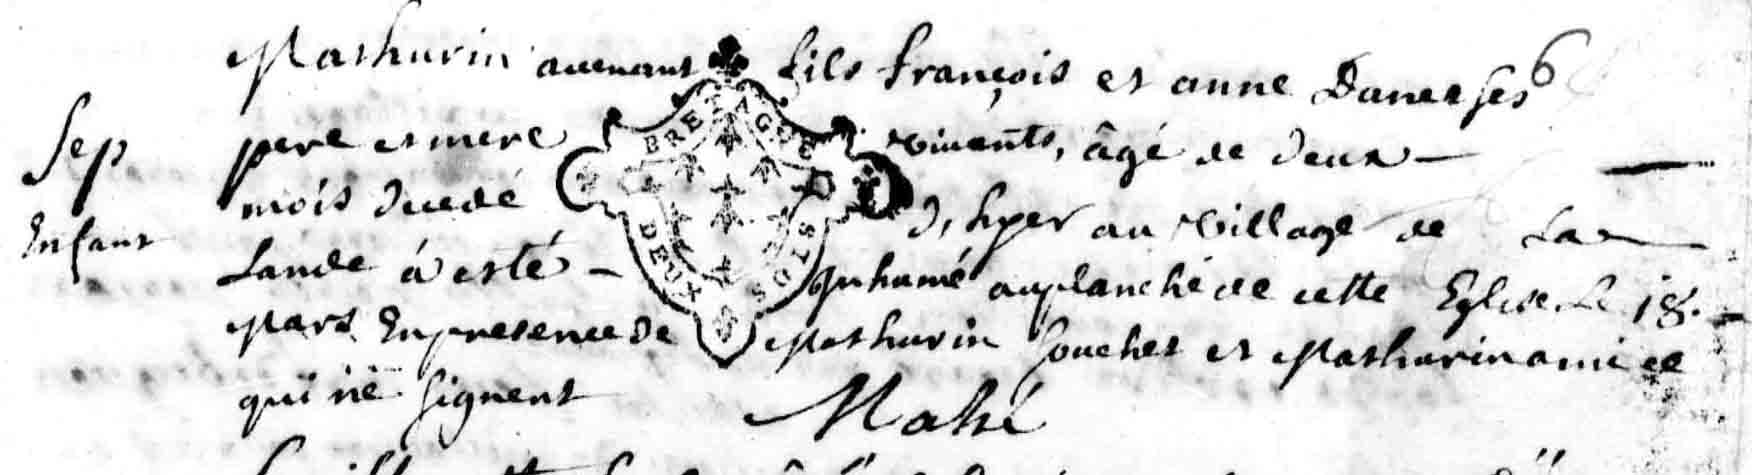 Mathurin avenant fils françois et anne Danet ses 6
Sep
pere et mere vivents, âgé de deux
mois decedé d'hyer au village de La
Enfant
Lande à esté Inhumé au planché de cette Eglise Le 18.
Mars En presence de Mathurin Souchet et Mathurin
qui nè signent
Mahé
BRETAGNE
DEUX SOLS